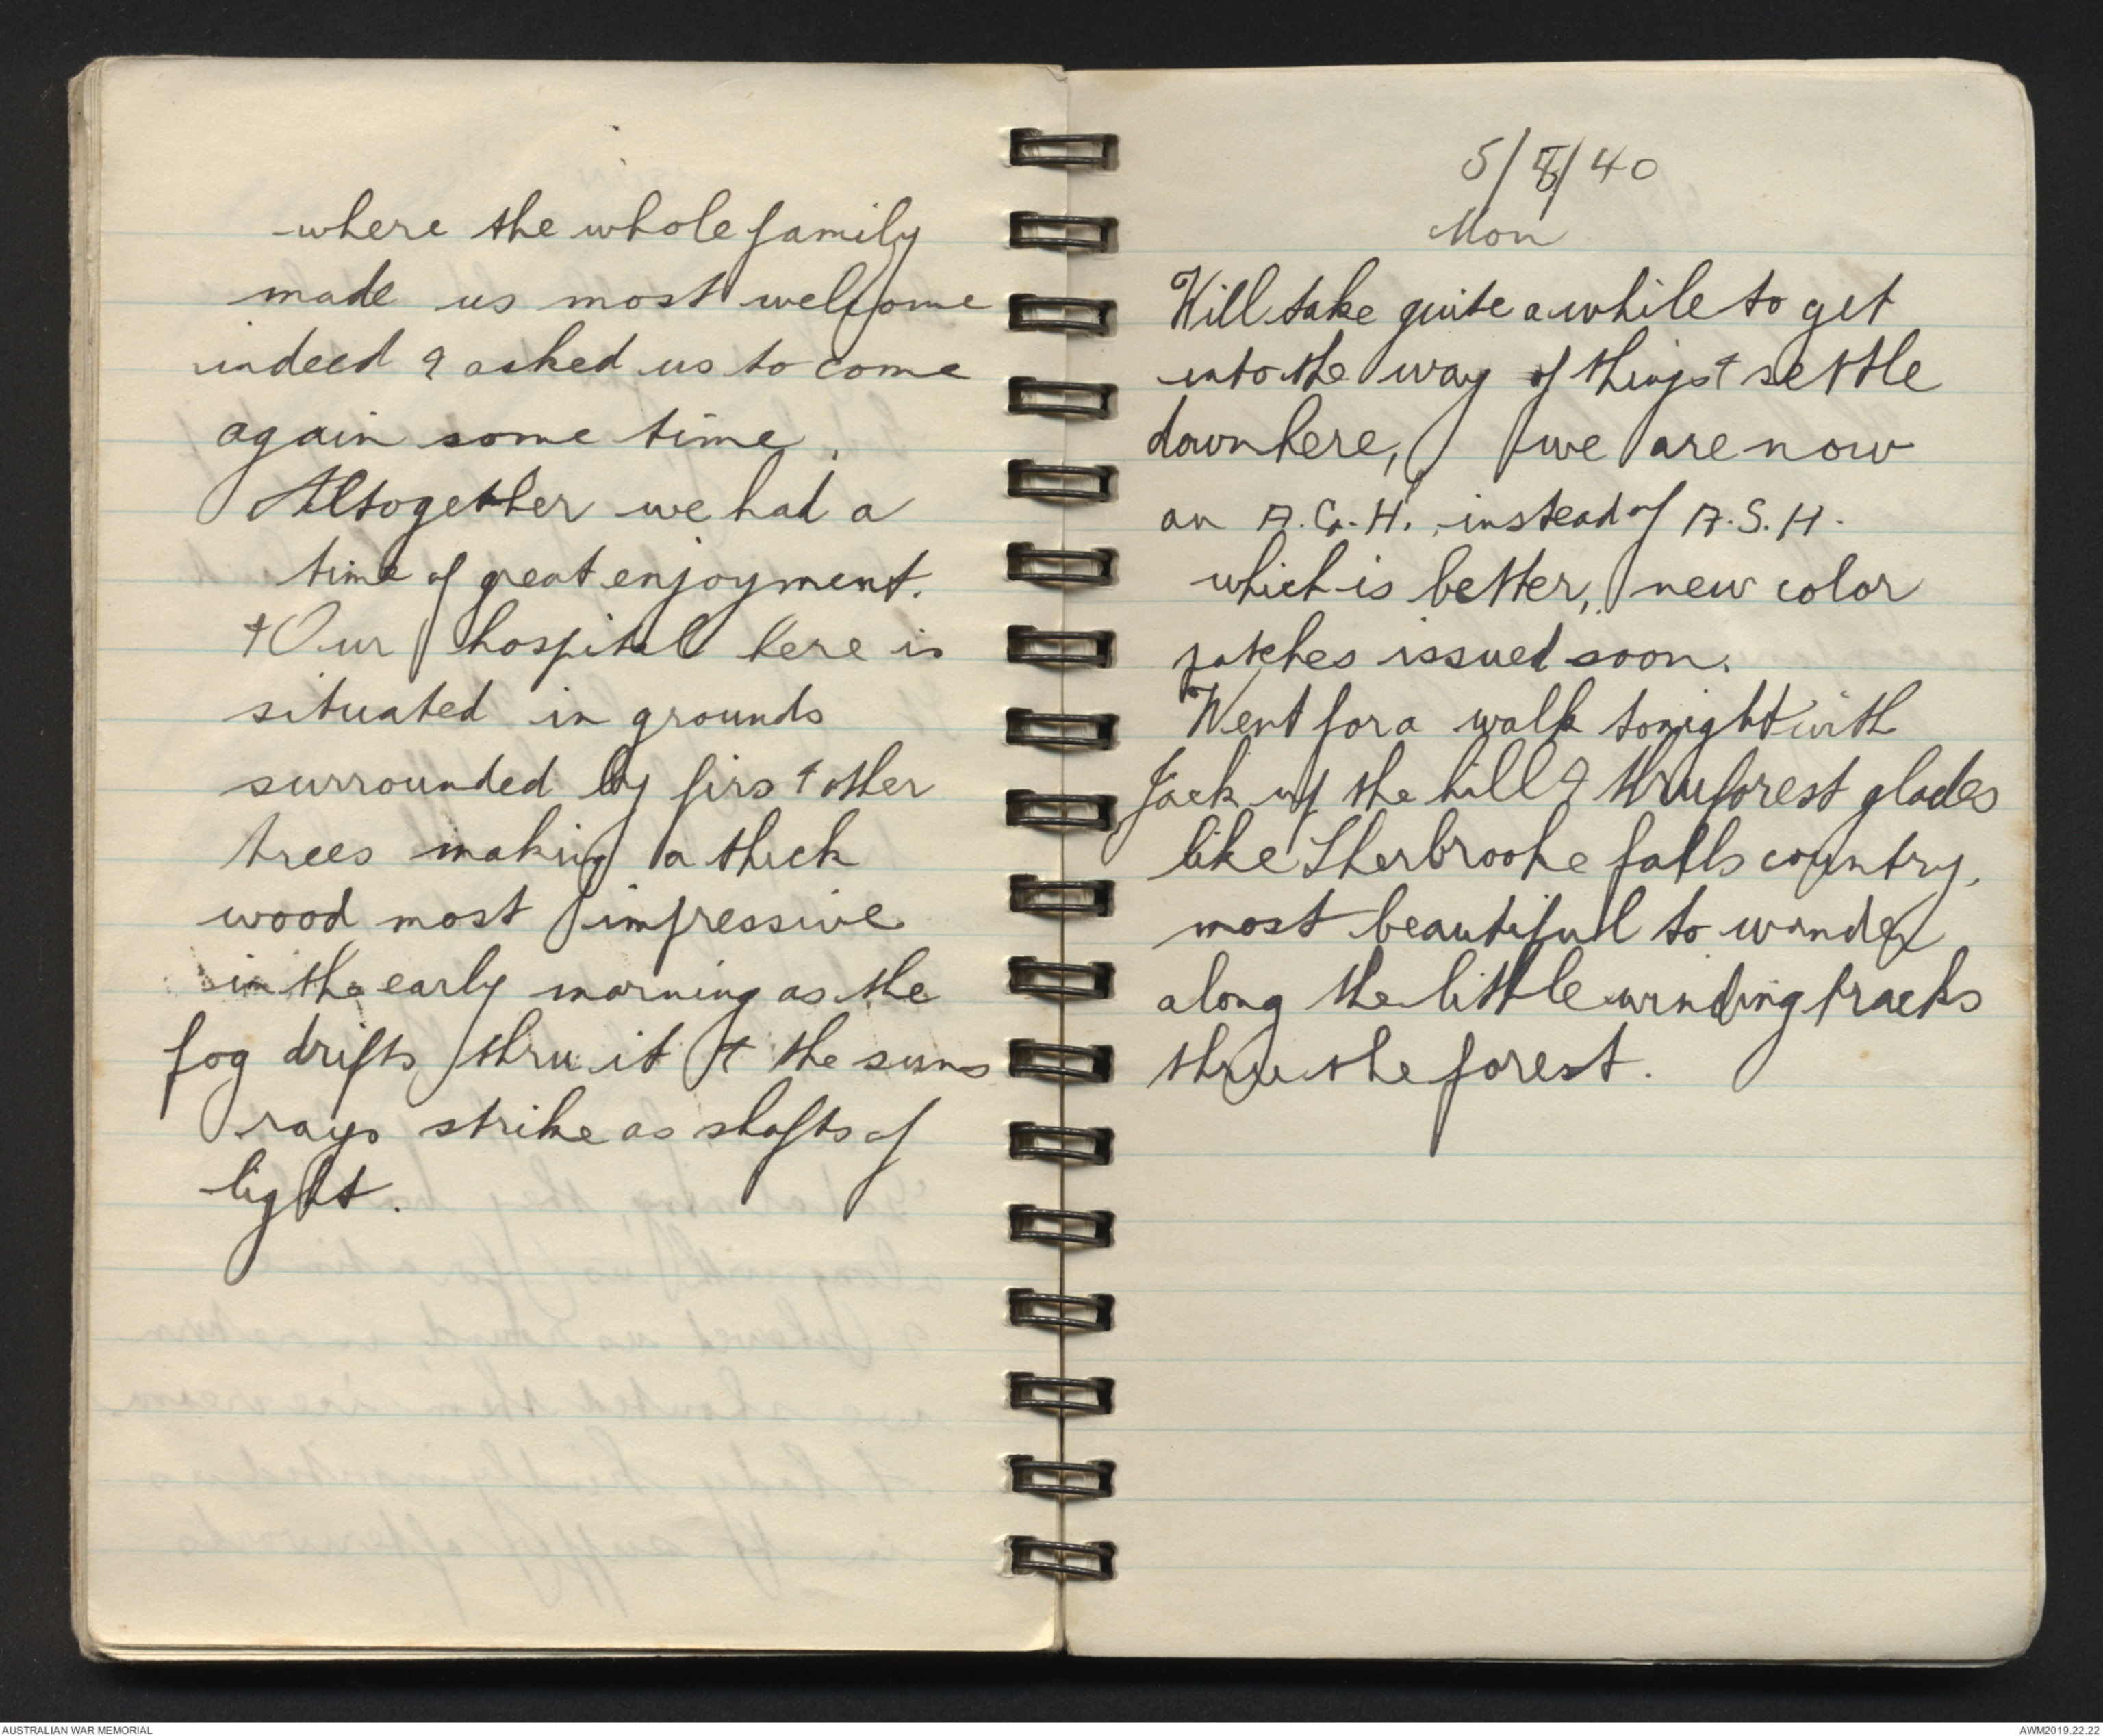 where the whole family
made us most welcome
indeed & asked us to come
again some time.
Altogether we had a
time of great enjoyment.
+ Our hospital here is
situated in grounds
surrounded by firs + other
trees making a thick
wood most impressive
in the early morning as the
fog drifts thru it + the suns
rays strike as shafts of
light.
5/8/40
Mon
Will take quite a while to get
into the way of things + settle
down here, we are now
an A.G.H. instead of A.S.H.
which is better, new color
patches issued soon.
Went for a walk tonight with
Jack up the hill & thru forest glades
like Sherbrooke falls country,
most beautiful to wander
along the little winding tracks
thru the forest.
AUSTRALIAN WAR MEMORIAL
AWM2019.22.22